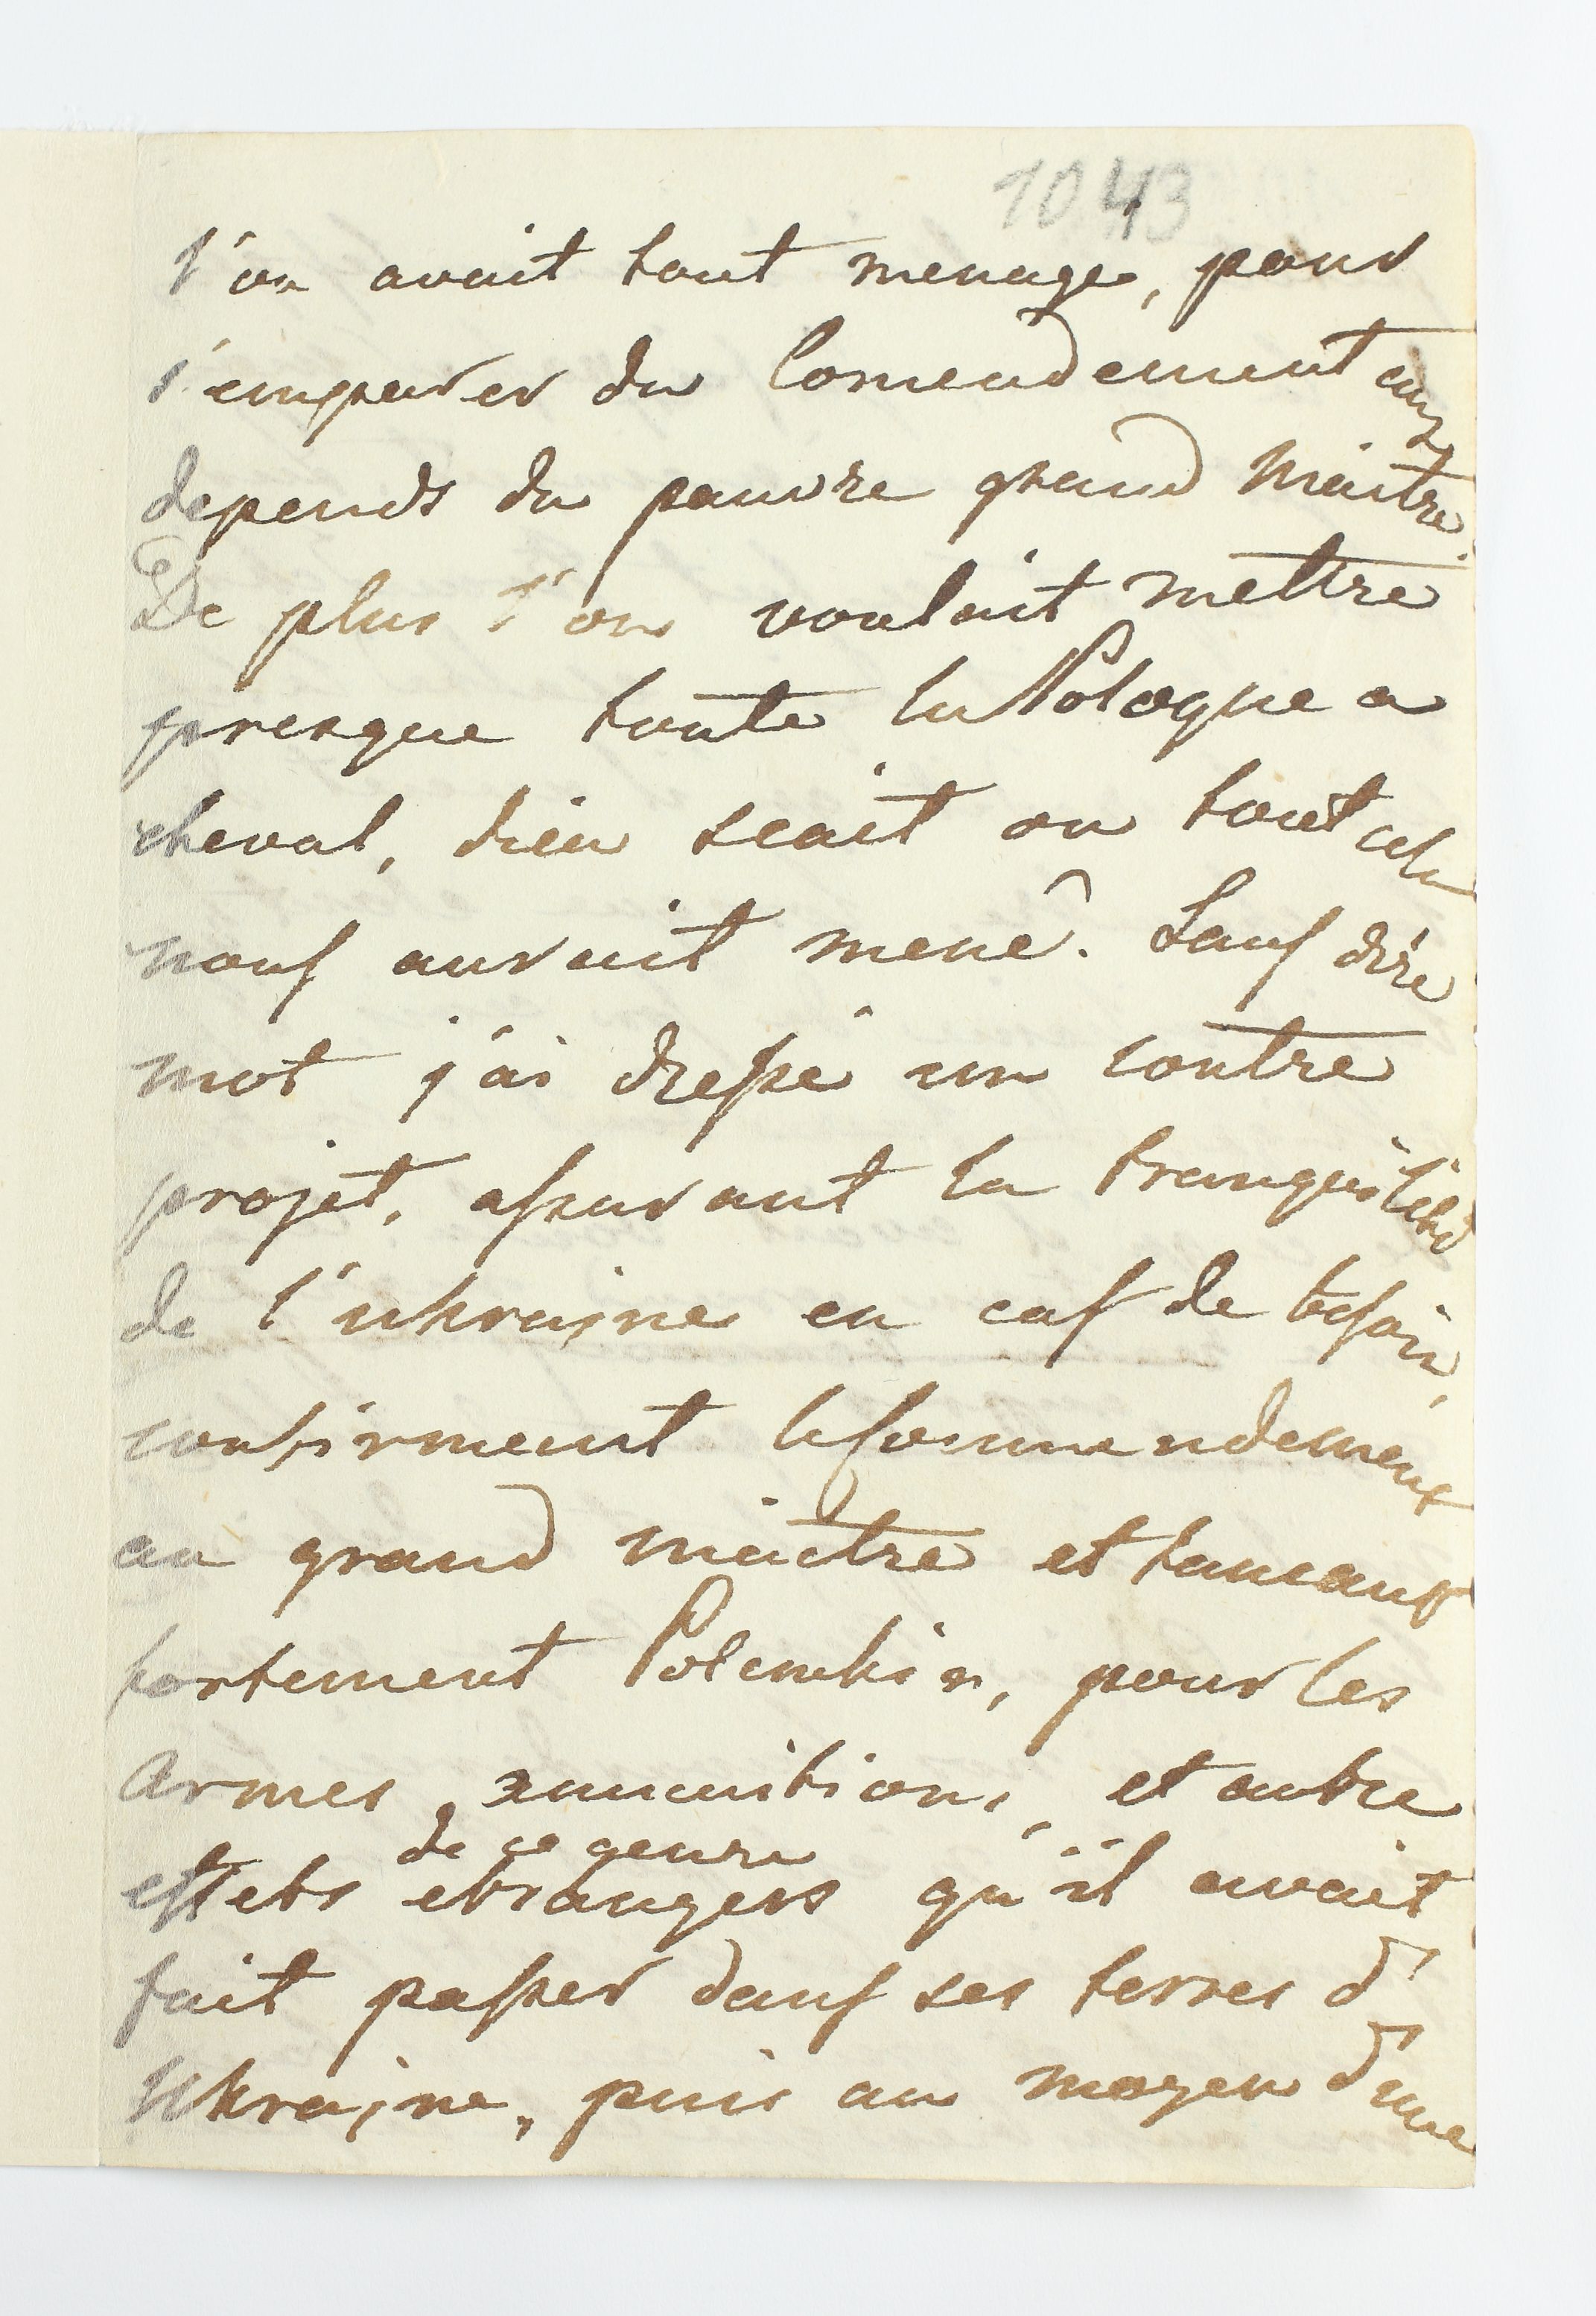 1043
l'on avait tout menage, pour
s'emparer du Comendement aux
depends du pauvre grand Maitre.
De plus l'on voulait mettre
presque toute la Pologne a
cheval, dieu scait ou tout cela
nous aurait mené. Sans dire
mot j'ai dressé un contre
projet, assurant la tranquilité
de l'ukraine en cas de besoin,
confirment le Commendement
au grand maitre et tancant
fortement Potemkin, pour les
armes, ammunitions, et autre
de ce genre
effets etrangers qu'il avait
fait passer dans ses terres d'
Ukraine, puis au moyen d'une